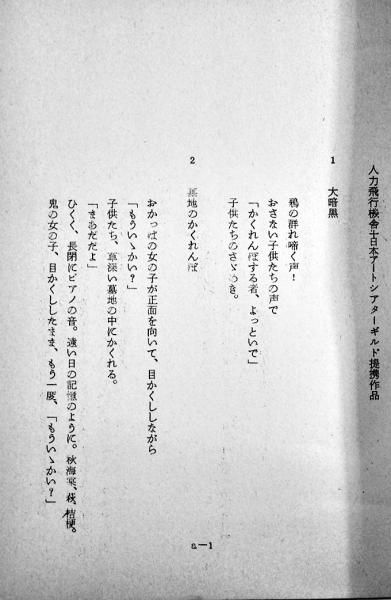 人力飛行機舎＋日本アートシアターギルド提携作品
1　大暗黒
鴉の群れ啼く声！
おさない子供たちの声で
「かくれんぼする者、よっといで」
子供たちのさゞめき。
2　墓地のかくれんぼ
おかっぱの女の子が正面を向いて、目かくししながら
「もういゝかい？」
子供たち、草深い墓地の中にかくれる。
「まあだだよ」
ひくく、長閑にピアノの音。遠い日の記憶のように。秋海棠、萩、桔梗。
鬼の女の子、目かくししたまま、もう一度、「もういゝかい？」
a－1